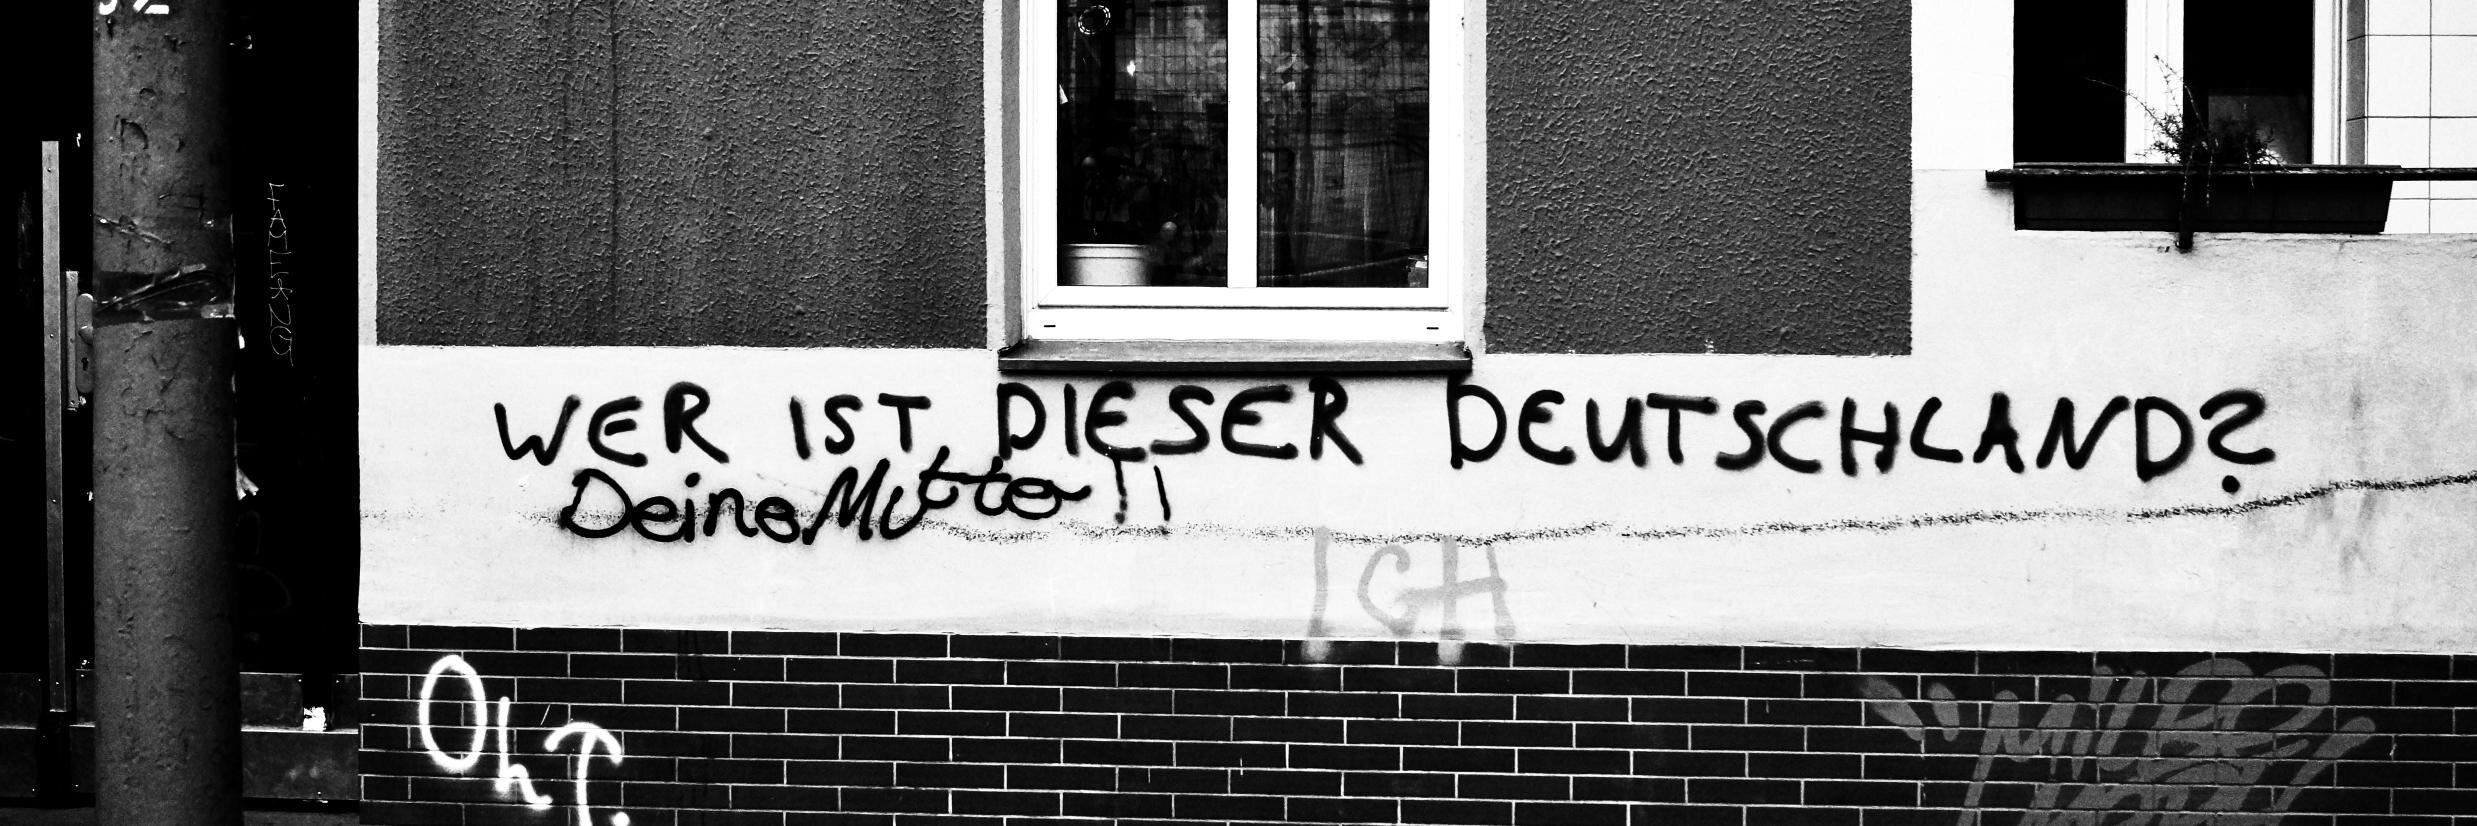 WER IST DIESER DEUTSCHLAND?
Deine Mutter!!
ICH
Oh T.